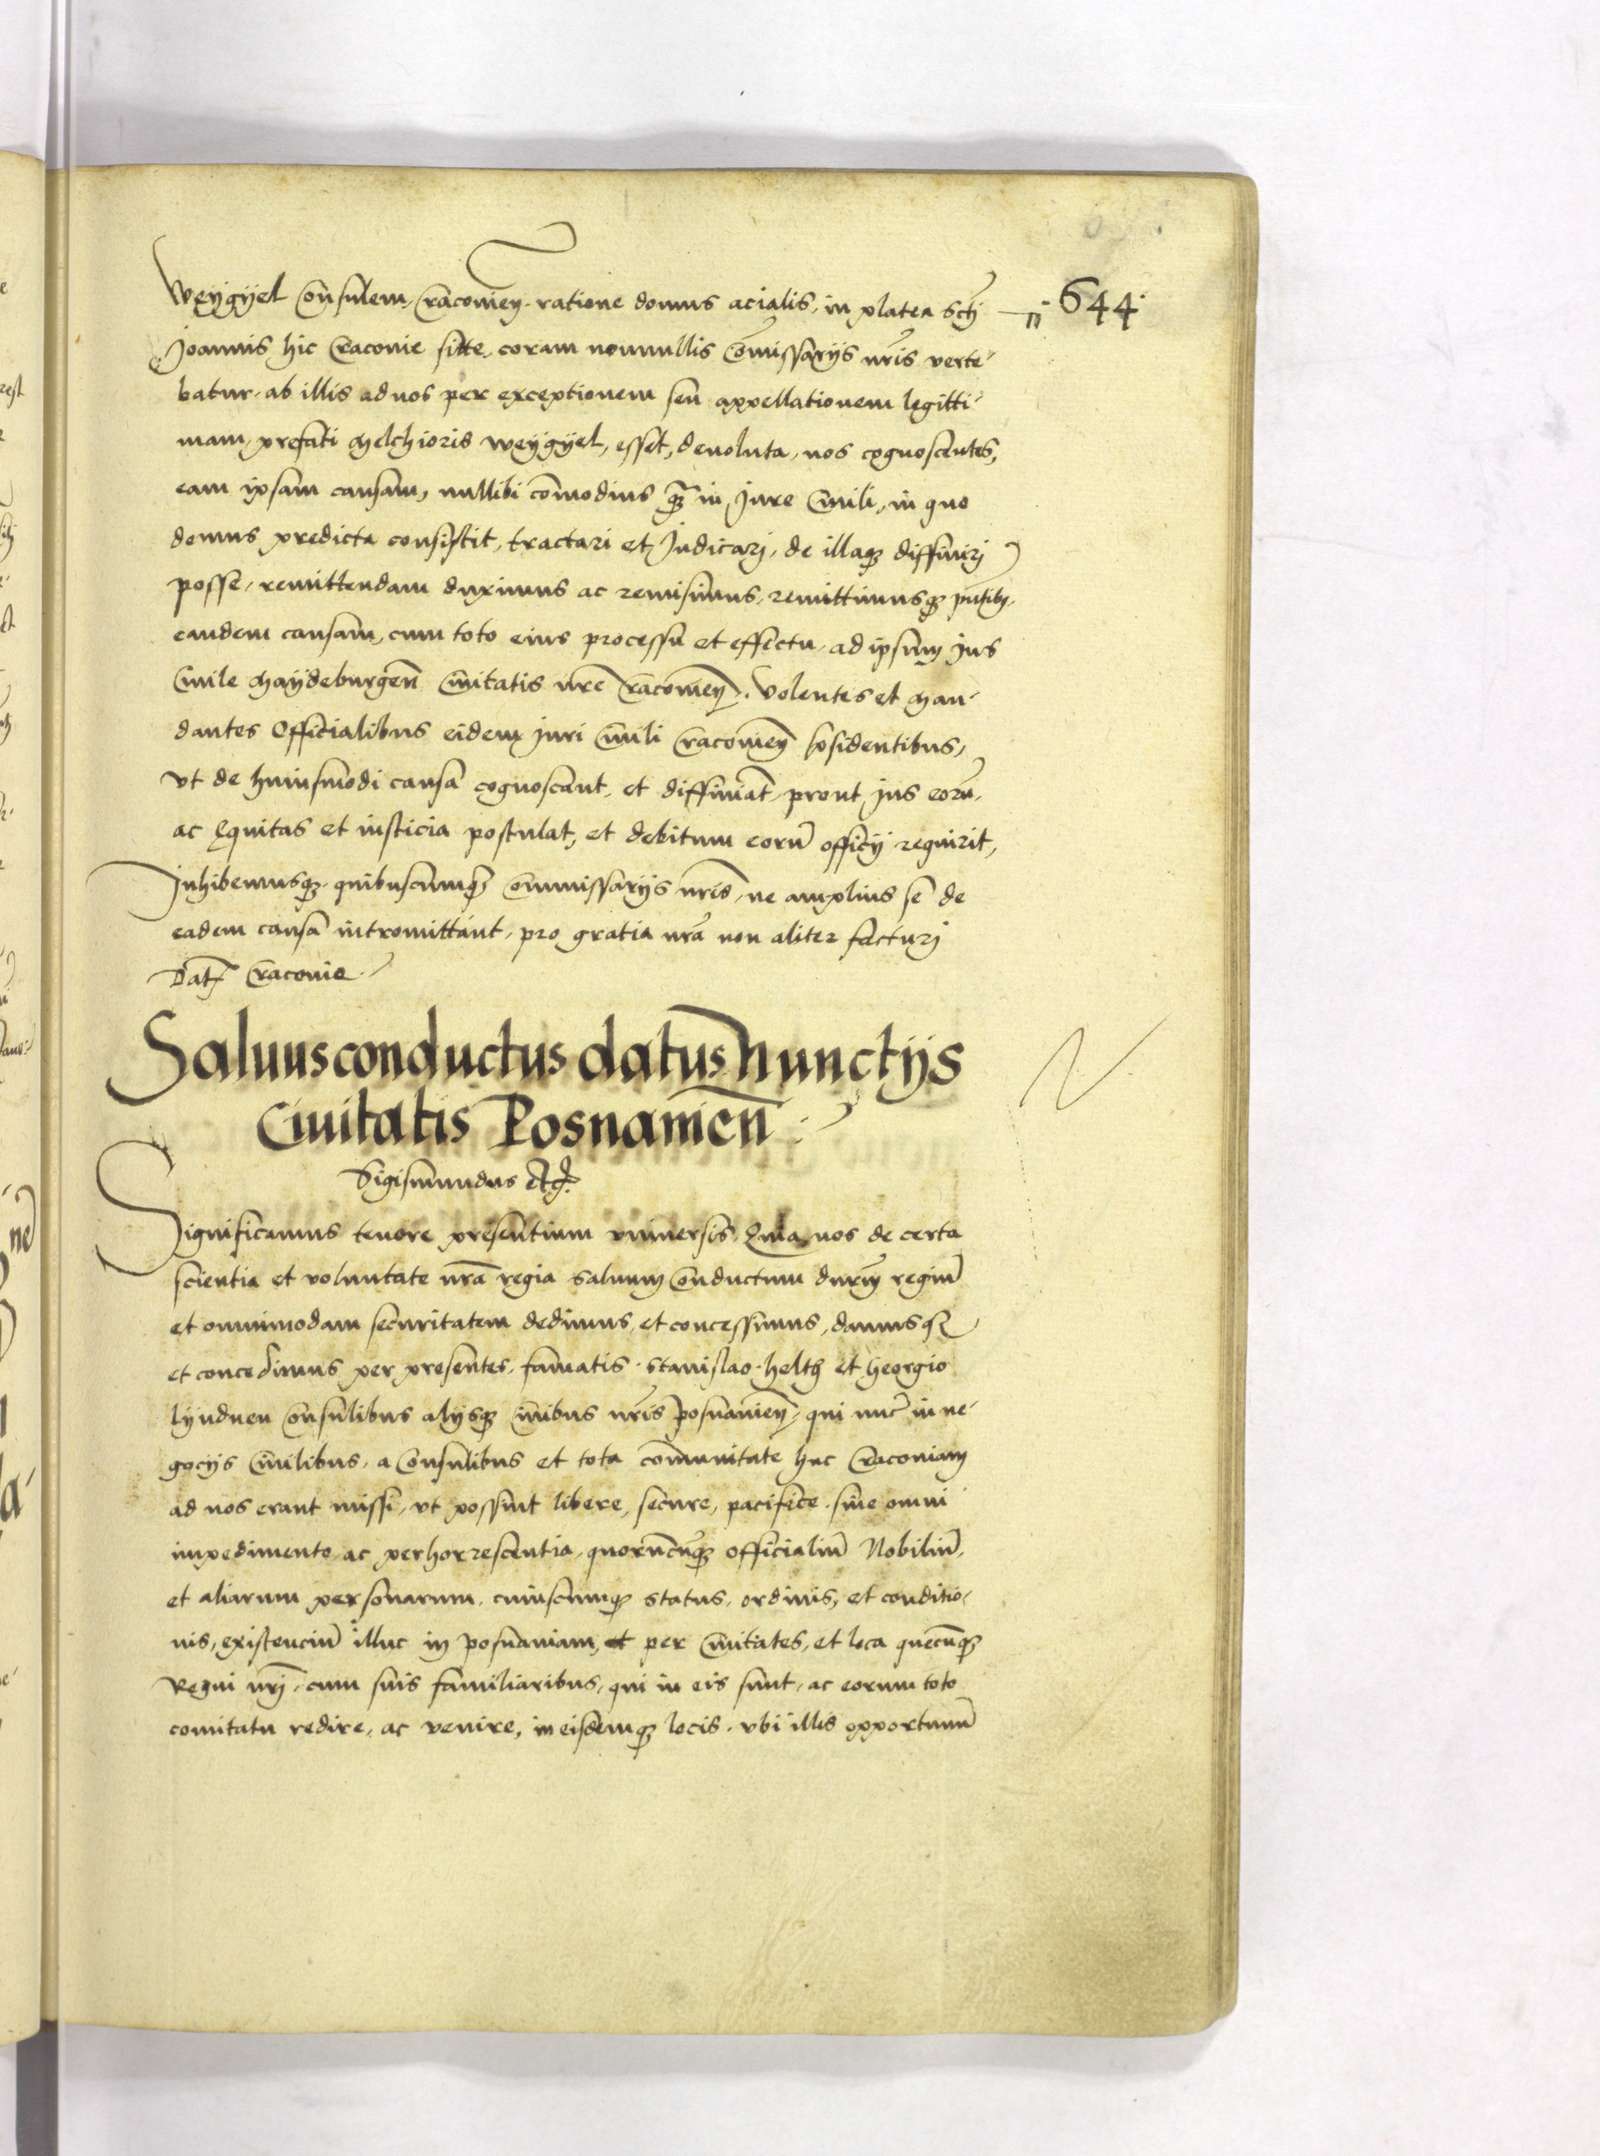 644
Weygyel Consulem Cracovien. ratione domus acialis, in platea Scti
Joannis hic Cracovie sitte, coram nonnullis Comissarys nris verte-
batur, ab illis ad nos per exceptionem seu appellationem legitti-
mam, prefati Melchioris Weygyel, esset, devoluta, nos cognoscentes,
eam ipsam causam, nullibi comodius qz in Jure Civili, in quo
domus predicta consistit, tractari et Judicari, de illaqz diffiniri
posse, remittendam duximus ac remisimus, remittimusqz pntibz,
eandem causam, cum toto eius processu et effectu, ad ipsum Jus
Civile Maydeburgen Civitatis nre Cracovien. Volentes et Man-
dantes Officialibus eidem Juri Civili Cracovien psidentibus,
vt de huiusmodi causa cognoscant, et diffiniat, prout Jus eoru,
ac Equitas et iusticia postulat, et debitum eoru officy requirit,
Inhibemusqz quibuscumqz Commissarys nris, ne amplius se de
eadem causa intromittant, pro gratia nra non aliter facturi
Dat Cracovie
Saluusconductus datus nunctys
Ciuitatis Posnanien
Sigismundus etc.
Significamus tenore presentium vniuersis, Quia nos de certa
scientia et voluntate nra regia saluum Conductum nrm regiu
et omnimodam securitatem dedimus, et concessimus, damusqz
et concedimus per presentes, famatis Stanislao helth et Georgio
lynduen Consulibus alysqz Civibus nris Posnanien, qui nuc in ne-
gocys Civilibus, a Consulibus et tota comunitate huc Cracoviam
ad nos erant missi, vt possint libere, secure, pacifice, sine omni
impedimento, ac perhorrescentia, quorucuqz officialiu Nobiliu,
et aliarum personarum, cuiuscumqz status, ordinis, et conditio-
nis, existenciu illuc in Posnaniam, et per Civitates, et loca quecuqz
Regni nri, cum suis familiaribus, qui in eis sunt, ac eorum toto
comitatu redire, ac venire, in eisdemqz locis, vbi illis opportunu